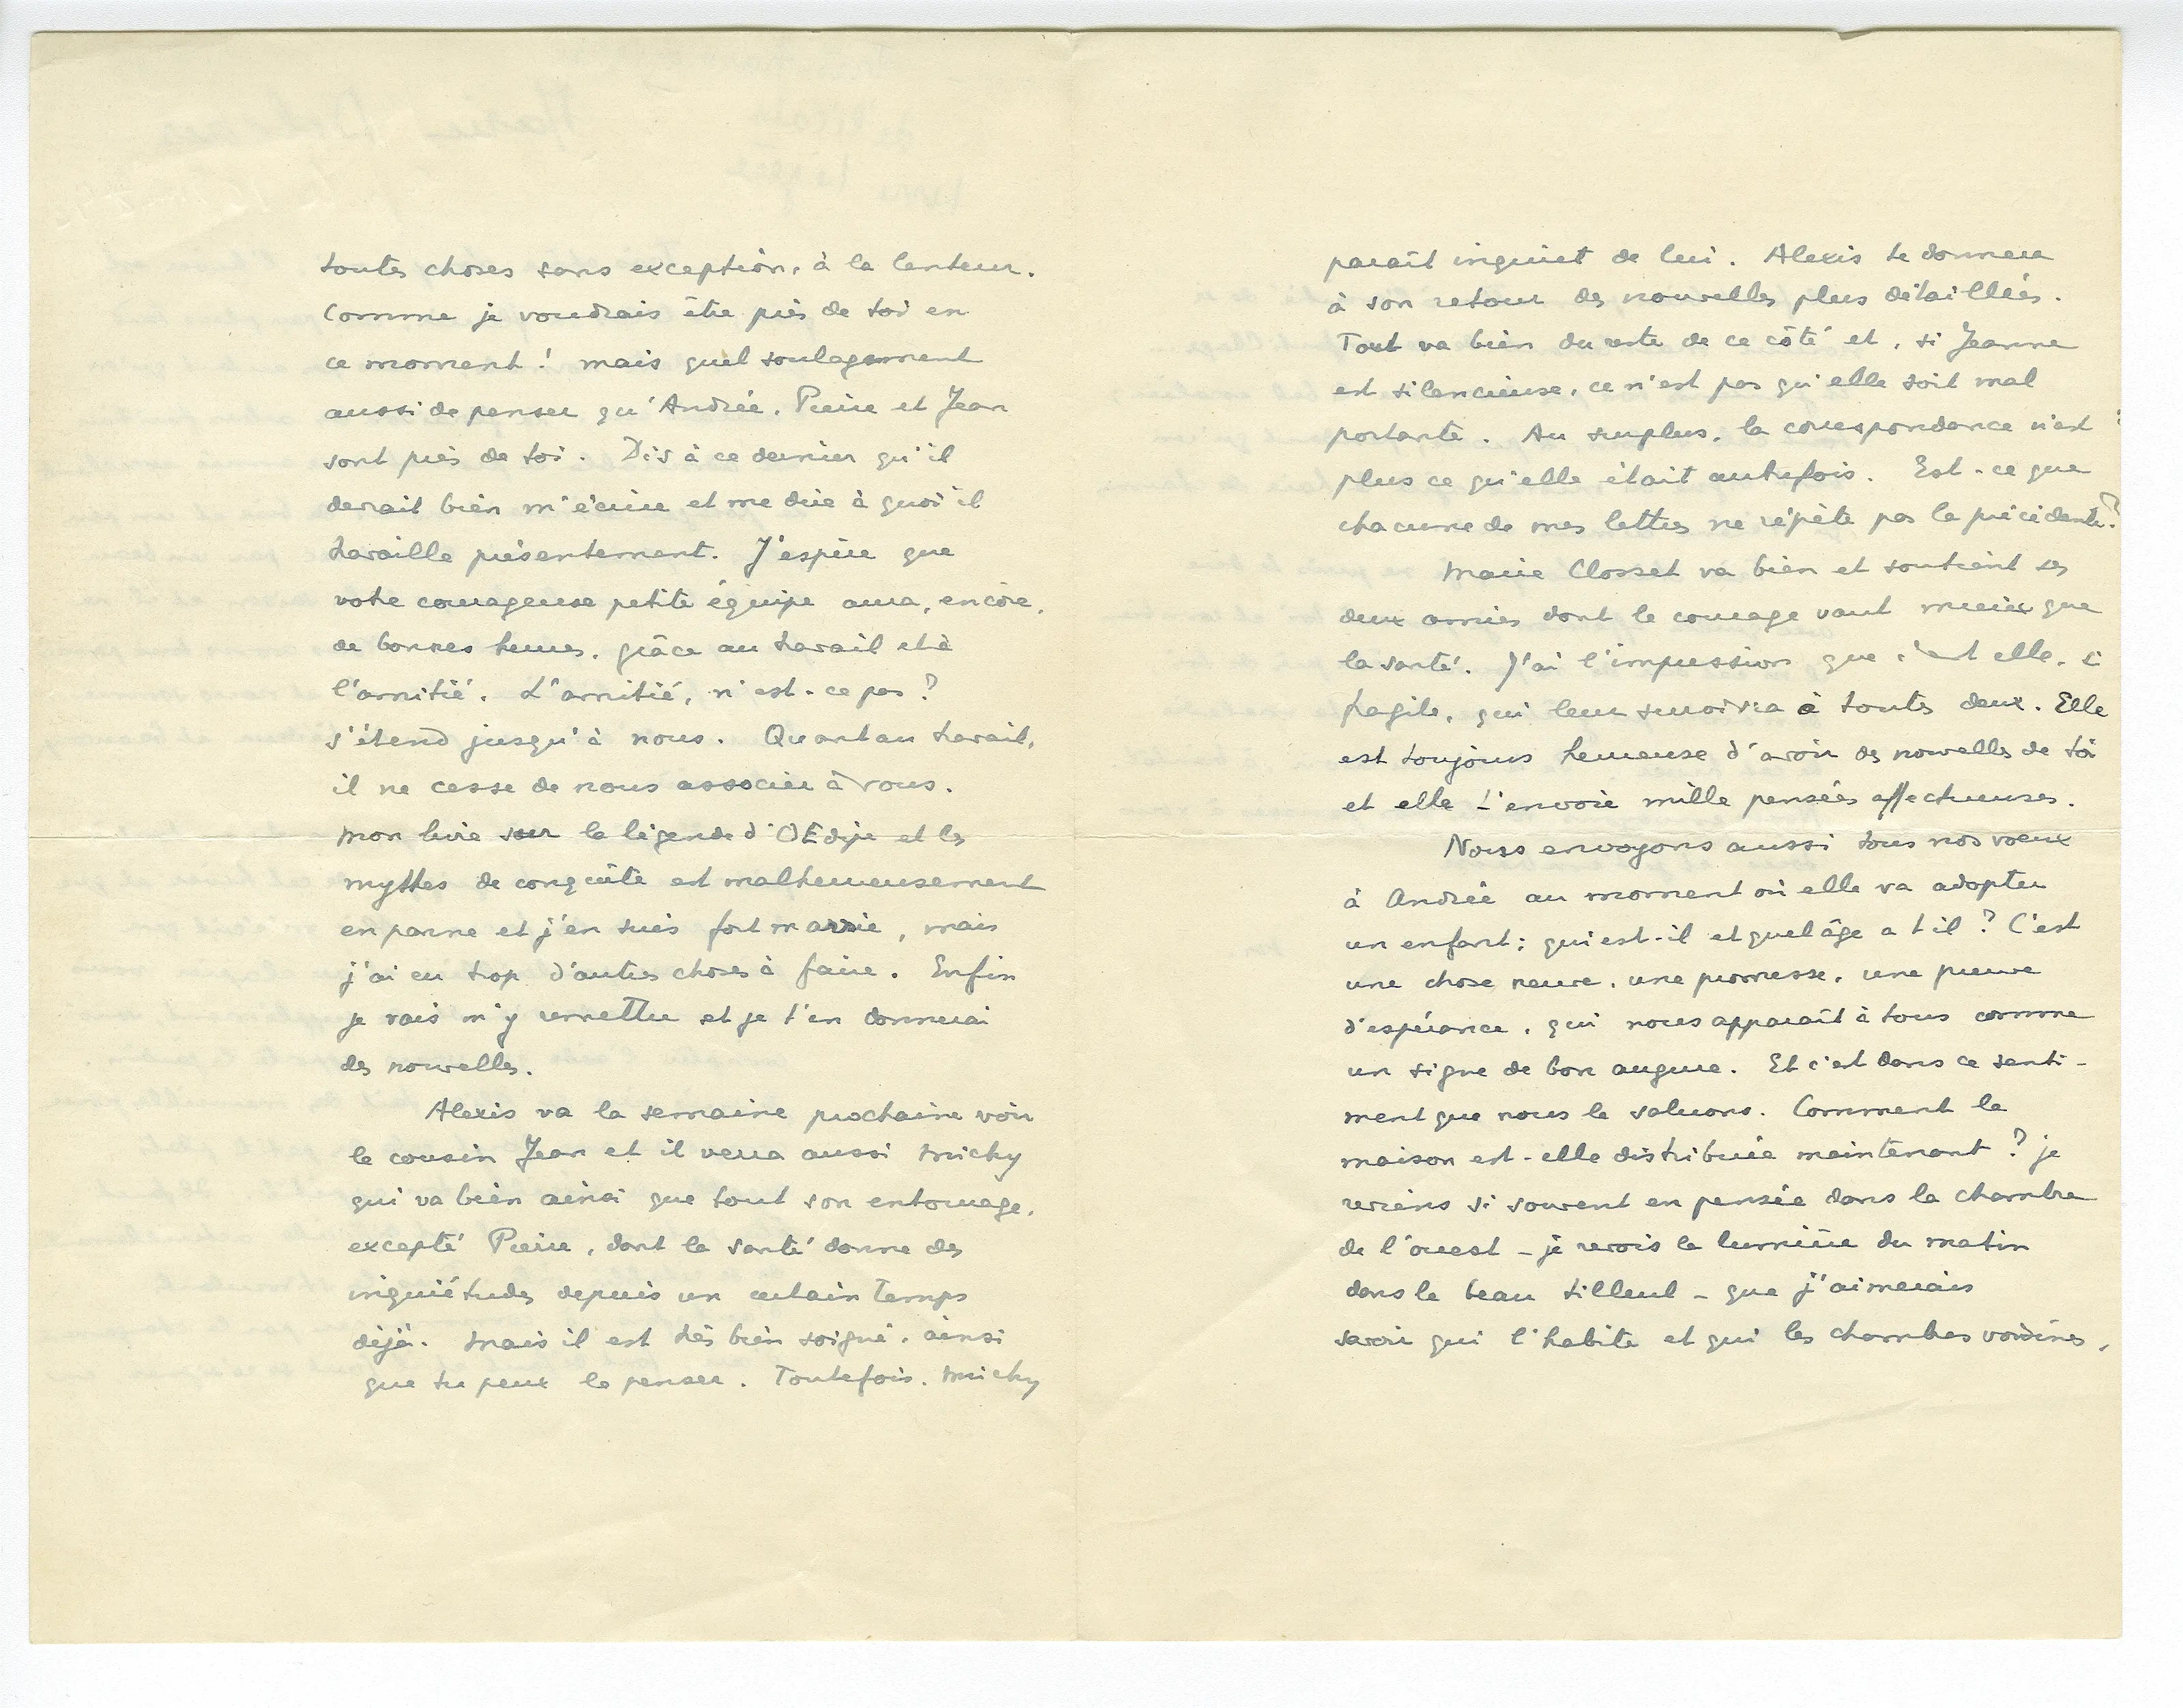 toutes choses sans exception, à la lenteur.
Comme je voudrais être près de toi en
ce moment ! mais quel soulagement
aussi de penser qu'Andrée, Pierre et Jean
sont près de toi. Dis à ce dernier qu'il
devrait bien m'écrire et me dire à quoi il
travaille présentement. J'espère que
votre courageuse petite équipe aura, encore,
de bonnes heures, grâce au travail et à
l'amitié. L'amitié, n'est-ce pas ?
s'étend jusqu'à nous. Quant au travail,
il ne cesse de nous associer à vous.
Mon livre sur la légende d'OEdipe et les
mythes de conquête est malheureusement
en panne et j'en suis fort marrie, mais
j'ai eu trop d'autres choses à faire. Enfin
je vais m'y remettre et je t'en donnerai
des nouvelles.
Alexis va la semaine prochaine voir
le cousin Jean et il verra aussi Michy
qui va bien ainsi que tout son entourage,
excepté Pierre, dont la santé donne des
inquiétudes depuis un certain temps
déjà. Mais il est très bien soigné, ainsi
que tu peux le penser. Toutefois, Michy
paraît inquiet de lui. Alexis te donnera
à son retour des nouvelles plus détaillées.
Tout va bien du reste de ce côté et, si Jeanne
est silencieuse, ce n'est pas qu'elle soit mal
portante. Au surplus, la correspondance n'est
plus ce qu'elle était autrefois. Est-ce que
chacune de mes lettres ne répète pas la précédente ?
Marie Closset va bien et soutient ses
deux amies dont le courage vaut mieux que
la santé. J'ai l'impression que c'est elle, si
fragile, qui leur survivra à toutes deux. Elle
est toujours heureuse d'avoir des nouvelles de toi
et elle t'envoie mille pensées affectueuses.
Nous envoyons aussi tous nos voeux
à Andrée au moment où elle va adopter
un enfant ; qui est-il et quel âge a t il ? C'est
une chose neuve, une promesse, une preuve
d'espérance, qui nous apparaît à tous comme
un signe de bon augure. Et c'est dans ce senti-
ment que nous le saluons. Comment la
maison est-elle distribuée maintenant ? je
reviens si souvent en pensée dans la chambre
de l'ouest – je revois la lumière du matin
dans le beau tilleul – que j'aimerais
savoir qui l'habite et qui les chambres voisines,